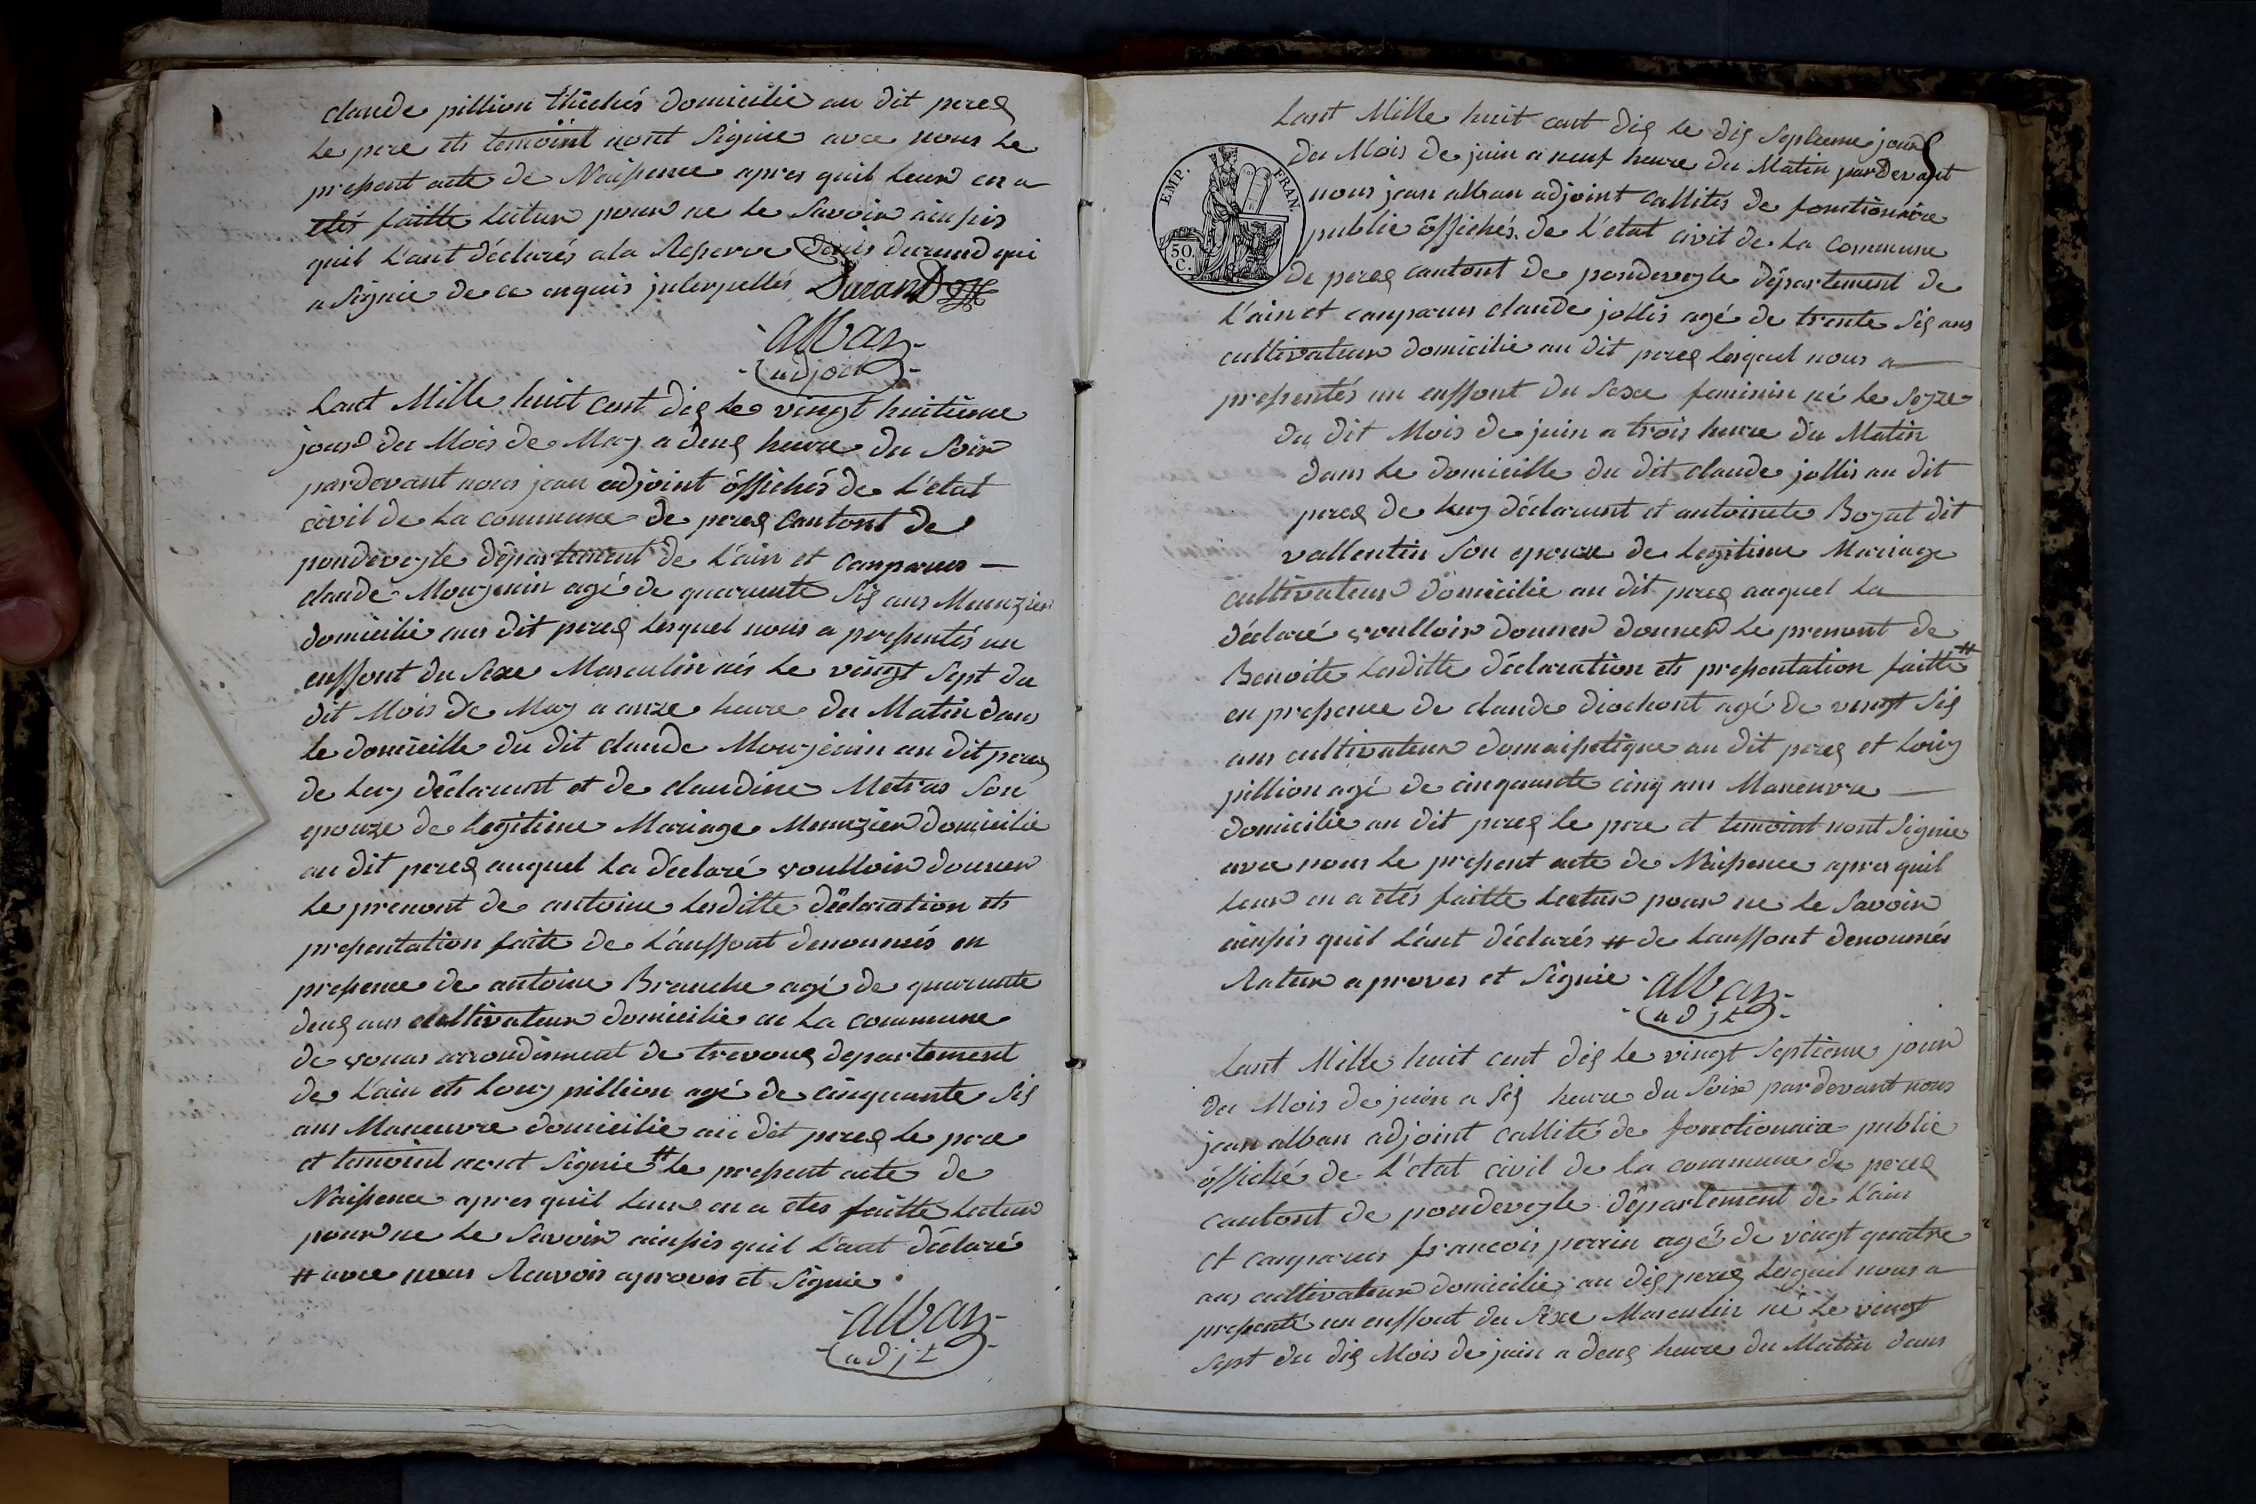 claude pillion thichés domicilie au dit perex
le pere ets temoint nont signie avec nous le
present acte de Naissence apres quil leur en a
etés faitte lectur pour ne le savoir ainssis
quil l'ant déclarés a la reserve denis durand qui
a signie de ce enquis juterpellés Durand
alban
adjoint
Lant Mille huit cent dix le vingt huitieme
jour du Mois de May a deux heure du soir
pardevant nous jean adjoint óffichés de l'etat
civil de la commune de perex cantont de
pondeveyle département de l'ain et conparus
claude Monjenin agé de quarente six ans Meunzier
domicilie aus dit perex lesquel nous a presentés un
enffont du sexe Masculin nés le vingt sept du
dit Mois de May a onze heure du Matin dans
le domicille du dit claude Monjenin au dit perex
de luy déclarent et de claudine Metras son
epouze de legitime Mariage Meunzier domicilie
au dit perex auquel la déclaré voulloir donner
le prenont de antoine lesditte déclaration ets
presentation faite de l'anffont denoumés en
presence de antoine Branche agé de quarente
deux ans cultivateur domicilie en la commune
de vonas arrondisment de trevoux departement
de l'ain ets Louy pillion agé de cinquente six
ans Maneuvre domicilie au dit perex le pere
et temoint nont signie # le present acte de
Naissence apres quil leur en a etes faitte lectur
pour ne le savoir ainssis quil l'ant déclaré
# avec nous Renvois aprouves et signie
alban
adjt
Lant Mille huit cent dix le dix septieme jour
du Mois de juin a neuf heure du Matin pardevant
nous jean alban adjoint callites de fonctionaire
public óffichés de l'etat civil de la commune
de perex cantont de pondeveyle département de
l'ain et conparus claude jollis agé de trente six ans
cultivateur domicilie au dit perex lesquel nous a
presentés un enffont du sexe feminin né le seyze
du dit Mois de juin a trois heure du Matin
dans le domicille du dit claude jollis au dit
perex de luy déclarent et antoinete Boyat dit
vallentin son epouze de legitime Mariage
cultivateur domicilie au dit perex auquel la
déclaré voulloir donner donner le prenont de
Benoite lesditte déclaration ets presentation faitte #
en presence de claude diochont agé de vingt six
ans cultivateur domaissetique au dit perex et Louy
pillion agé de cinquante cinq ans Maneuvre
domicilie au dit perex le pere et temoint nont signie
avec nous le present acte de Naissence apres quil
leur en a etés faitte lectur pour ne le savoir
ainssis quil l'ént déclarés # de lanffont denoumés
Ratur aprouves et signie
alban
adjt
Lant Mille huit cent dix le vingt septieme jour
du Mois de juin a six heure du soir pardevant nous
jean alban adjoint callité de fonctionaire public
óffiché de l'etat civil de la commune de perex
cantont de pondeveyle département de l'ain
et conparus francois perrin agé de vingt quatre
ans cultivateur domicilie au dix perex lesquel nous a
presenté un enffont du sexe Masculin né le vingt
sept du dix Mois de juin a deux heure du Matin dans
EMP. FRAN.
50.
C.